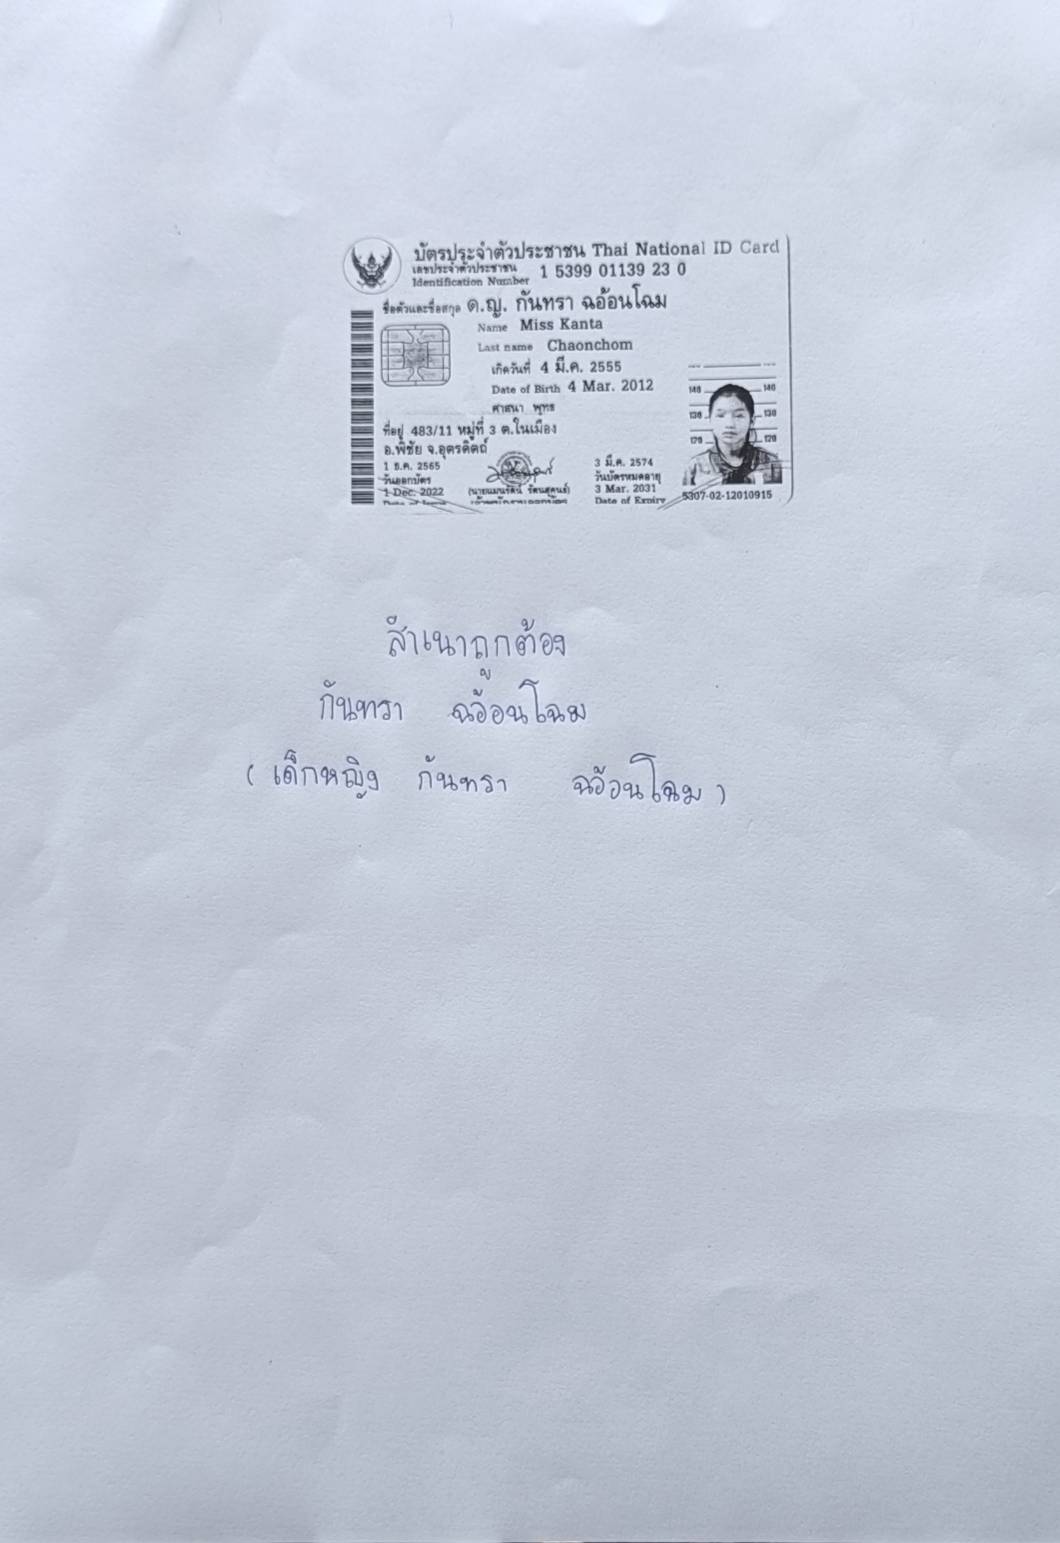 บัตรประจำตัวประชาชน Thai National ID Card
เลขประจำตัวประชาชน
Identification Number
1 5399 01139 23 0
ชื่อตัวและชื่อสกุล ด.ญ. กันทรา ฉอ้อนโฉม
Name Miss Kanta
Last name Chaonchom
เกิดวันที่ 4 มี.ค. 2555
Date of Birth 4 Mar. 2012
ศาสนา พุทธ
ที่อยู่ 483/11 หมู่ที่ 3 ต.ในเมือง
อ.พิชัย จ.อุตรดิตถ์
1 ธ.ค. 2565
วันออกบัตร
1 Dec. 2022
Date of Issue
3 มี.ค. 2574
วันบัตรหมดอายุ
3 Mar. 2031
Date of Expiry
140 140
130 130
120 120
5307-02-12010915
สำเนาถูกต้อง
กันทรา ฉอ้อนโฉม
( เด็กหญิง กันทรา ฉอ้อนโฉม )